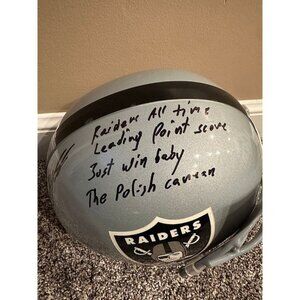 Raiders All time
Leading Point score
Just win baby
The Polish cannon
RAIDERS